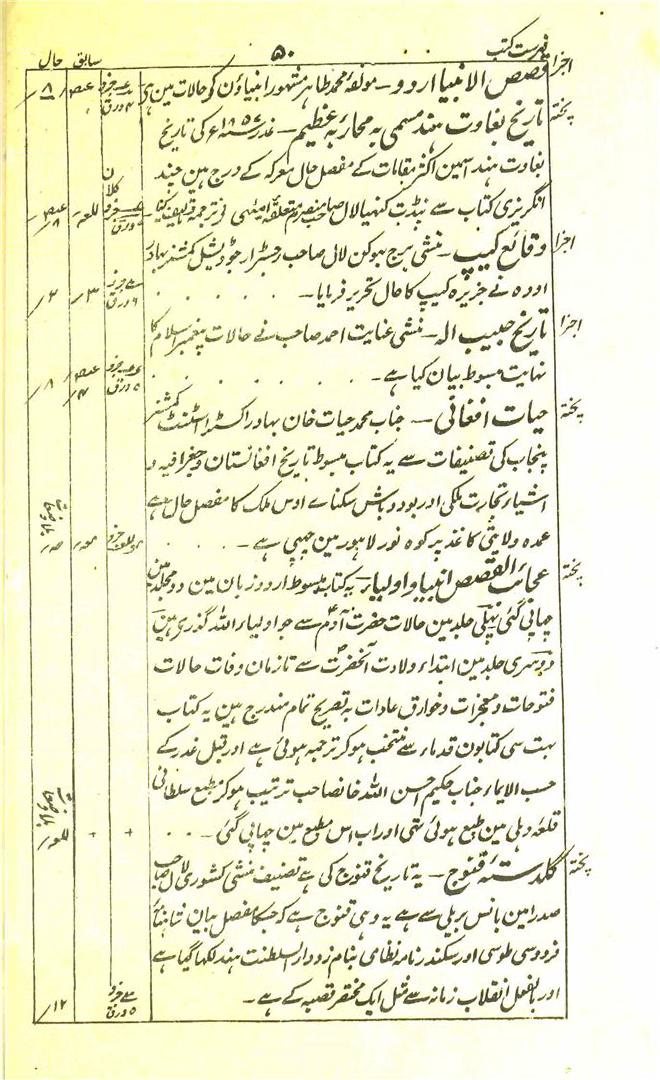 فہرست کتب
۵۰
سابق حال
اجزا قصص الانبیا اردو۔ مولفۂ محمد طاہر مشہور انبیاؤن کے حالات مین ہی
پختہ تاریخ بغاوت ہند مسمی بہ محاربۂ عظیم۔ غدر ۱۸۵۷ء کی تاریخ
بغاوت ہند اسمین اکثر مقامات کے مفصل حال معرکہ کے درج ہین چند
انگریزی کتاب سے پنڈت کنہیالال صاحب منصرم متعلقہ امیٹھی نے ترجمہ و تالیف کیا
اجزا وقائع کیپ۔ منشی برج بھوکن لال صاحب رجسٹرار جوڈیشل کمشنر بہادر
اودہ نے جزیرہ کیپ کا حال تحریر فرمایا۔
۳/ ۲/
اجزا تاریخ حبیب الہ۔ منشی عنایت احمد صاحب نے حالات پیغمبر اسلام کا
نہایت مبسوط بیان کیا ہے۔
۸/
پختہ حیات افغانی۔ جناب محمد حیات خان بہادر اکسٹرا اسٹنٹ کمشنر
پنجاب کی تصنیفات سے یہ کتاب مبسوط تاریخ افغانستان و جغرافیہ و
اشیاء تجارت ملکی اور بود و باش سکناے اوس ملک کا مفصل حال ہے
عمدہ ولایتی کاغذ پر کوہ نور لاہور مین چھپی ہے۔
پختہ عجائب القصص انبیا و اولیا۔ یہ کتاب مبسوط اردو زبان مین دو مجلد مین
چھاپی گئی پہلی جلد مین حالات حضرت آدم سے جو اولیاء اللہ گذری ہین
دوسری جلد مین ابتداء ولادت آنحضرت سے تا زمان وفات حالات
فتوحات و معجزات و خوارق عادات بہ تصریح تمام مندرج ہین یہ کتاب
بہت سی کتابون قدماء سے منتخب ہوکر ترجمہ ہوئی ہے اور قبل غدر کے
حسب الایماء جناب حکیم احسن اللہ خانصاحب ترتیب ہوکر مطبع سلطانی
قلعہ دہلی مین طبع ہوئی تھی اور اب اس مطبع مین چھاپی گئی۔
پختہ گلدستۂ قنوج۔ یہ تاریخ قنوج کی ہے تصنیف منشی کشوری لال صاحب
صدر امین بانس بریلی سے ہے یہ وہی قنوج ہے کہ جسکا مفصل بیان شاہنامہ
فردوسی طوسی اور سکندر نامہ نظامی بنام زد دار السلطنت ہند لکھا گیا ہے
اور بالفعل انقلاب زمانہ سے مثل ایک مختصر قصبہ کے ہے۔
۱۲/